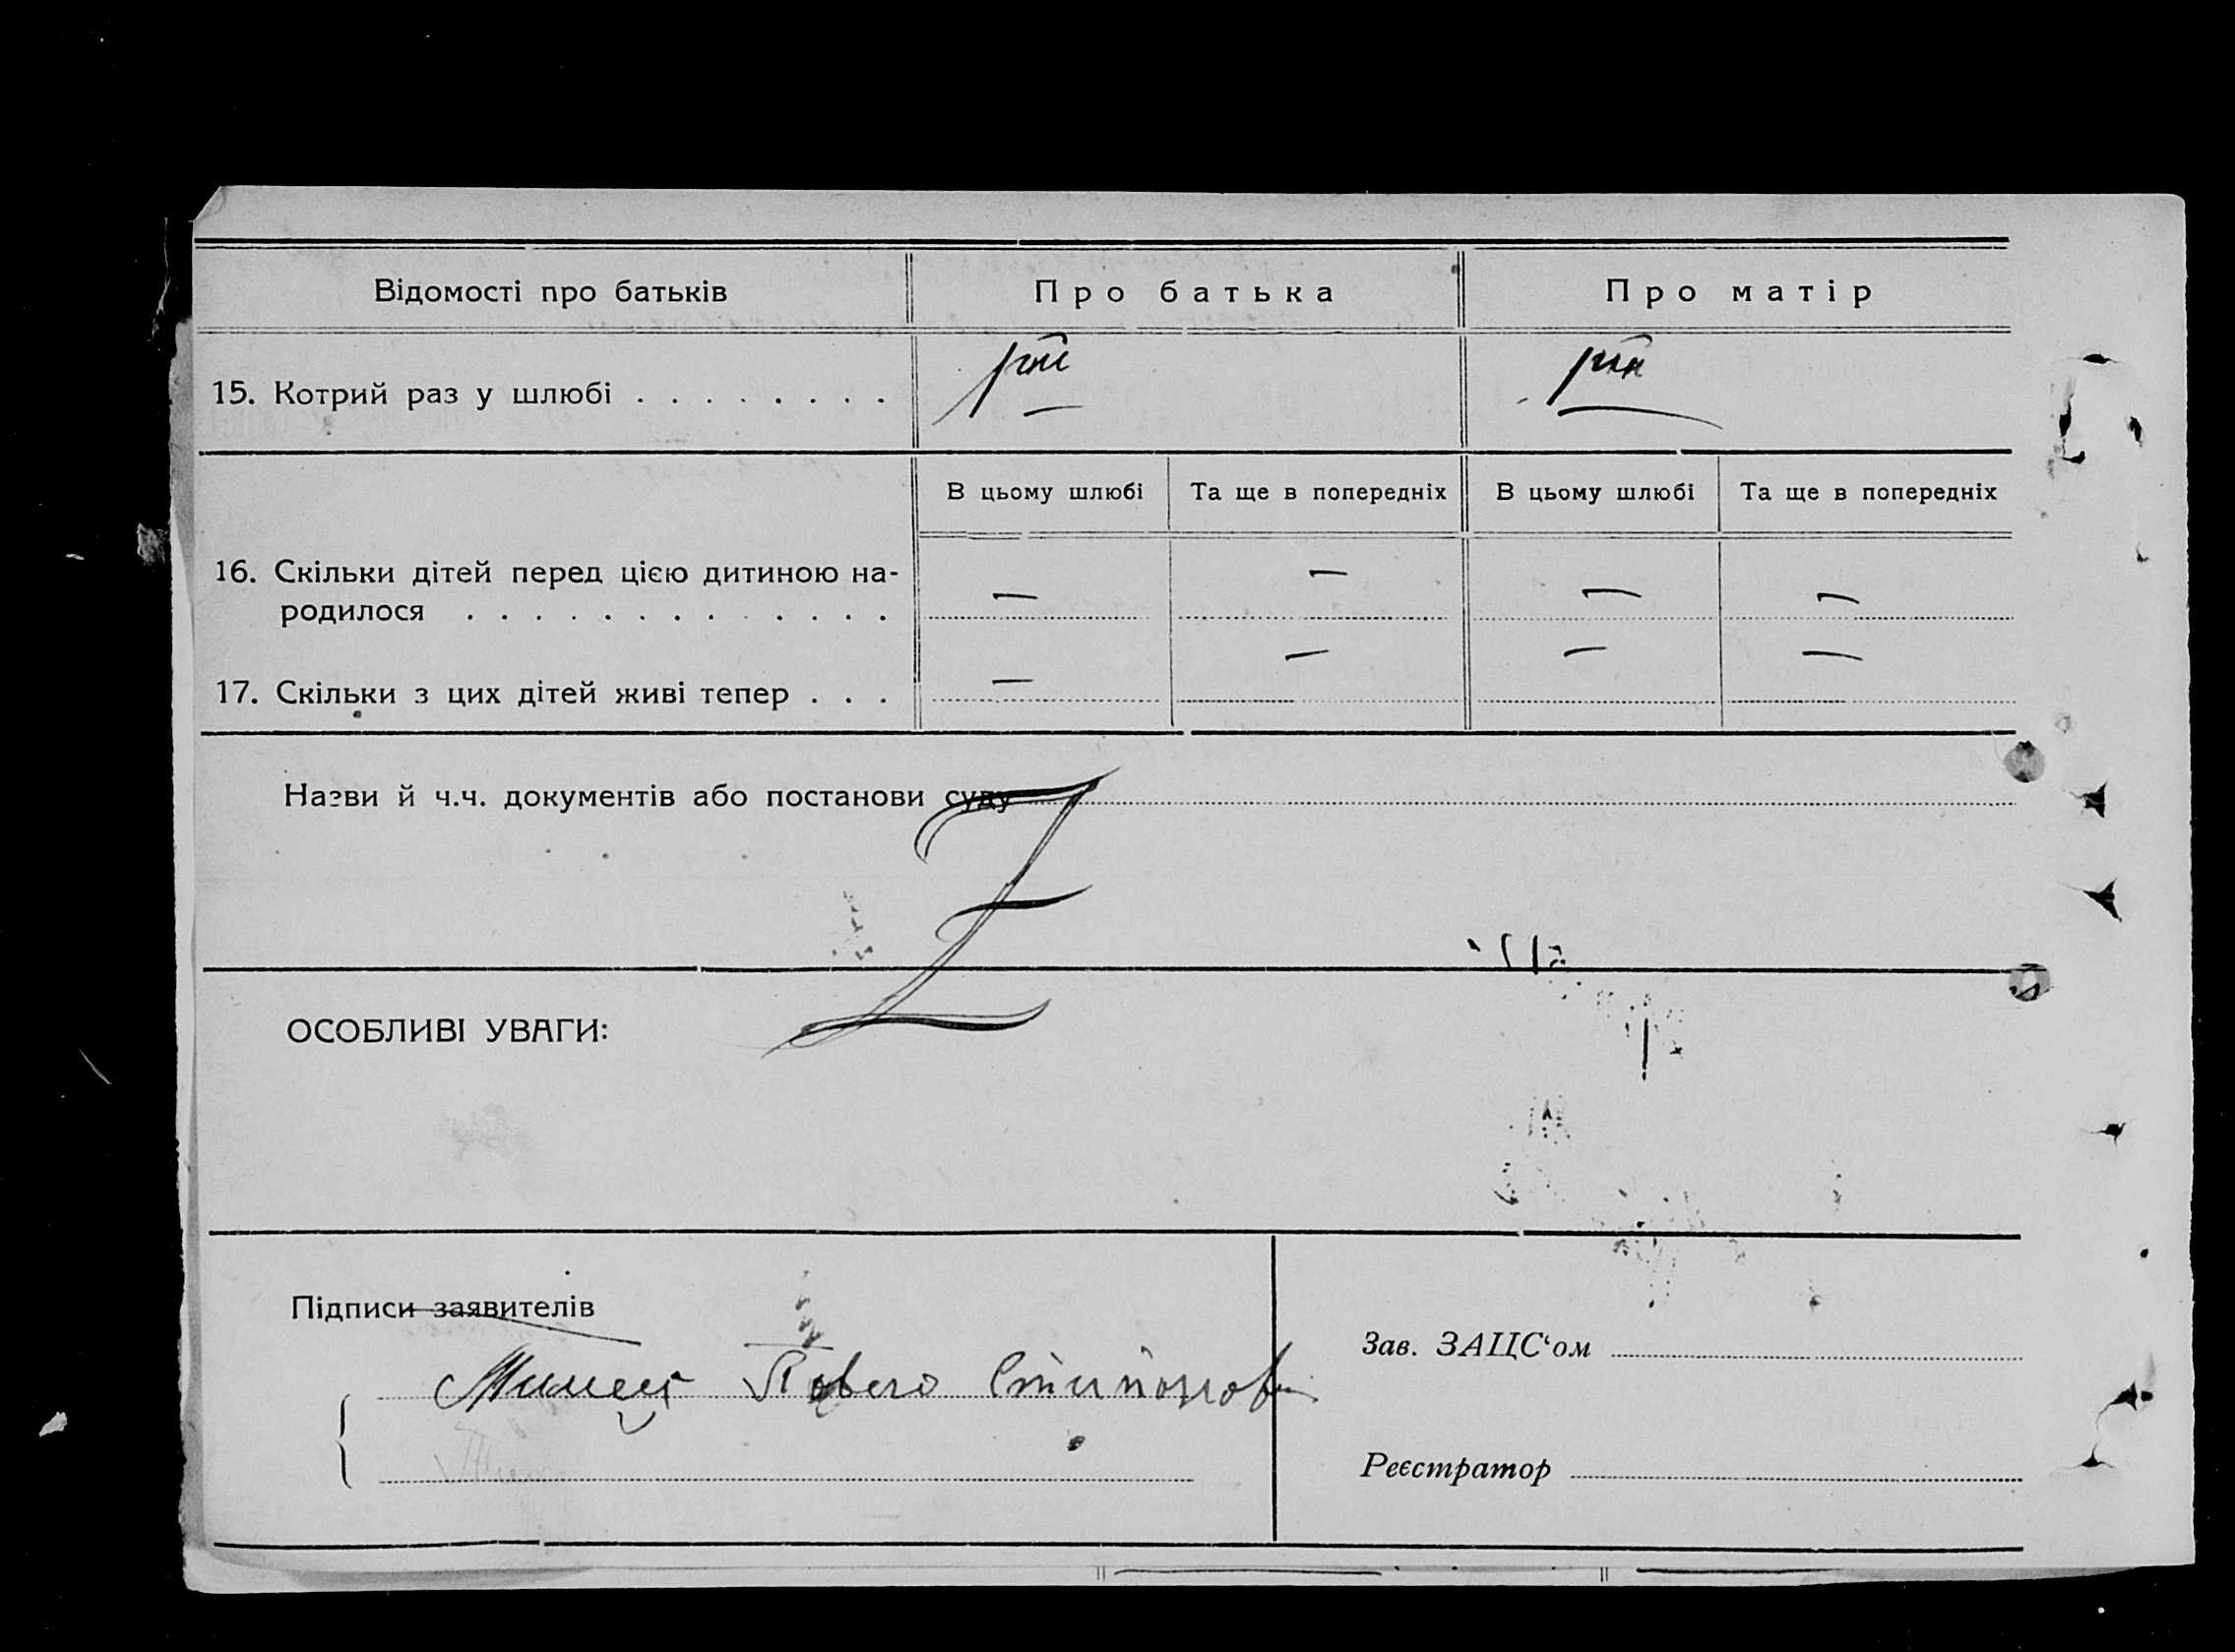 Відомості про батьків Про батька Про матір
15. Котрий раз у шлюбі . . . . . . . .
В цьому шлюбі Та ще в попередніх В цьому шлюбі Та ще в попередніх
16. Скільки дітей перед цією дитиною на-
родилося . . . . . . . . . . . . . — — — —
17. Скільки з цих дітей живі тепер . . . — — — —
Назви й ч.ч. документів або постанови суду
Z
ОСОБЛИВІ УВАГИ:
Підписи заявителів
Зав. ЗАЦС‘ом
Реєстратор